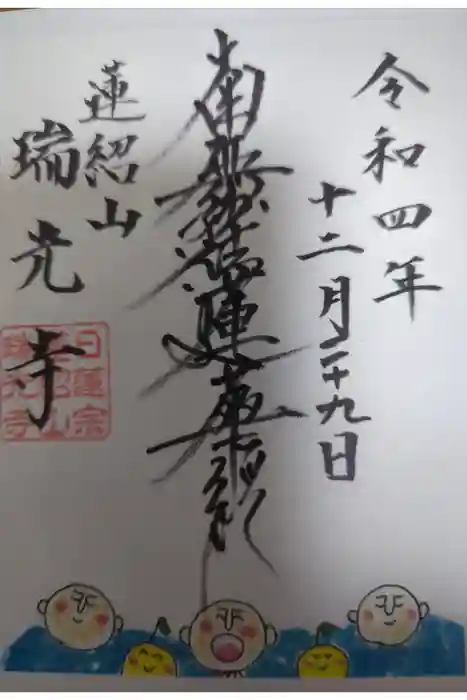 令和四年
十二月二十九日
南無妙法蓮華経
蓮紹山
瑞光寺
日蓮宗
蓮紹山
瑞光寺